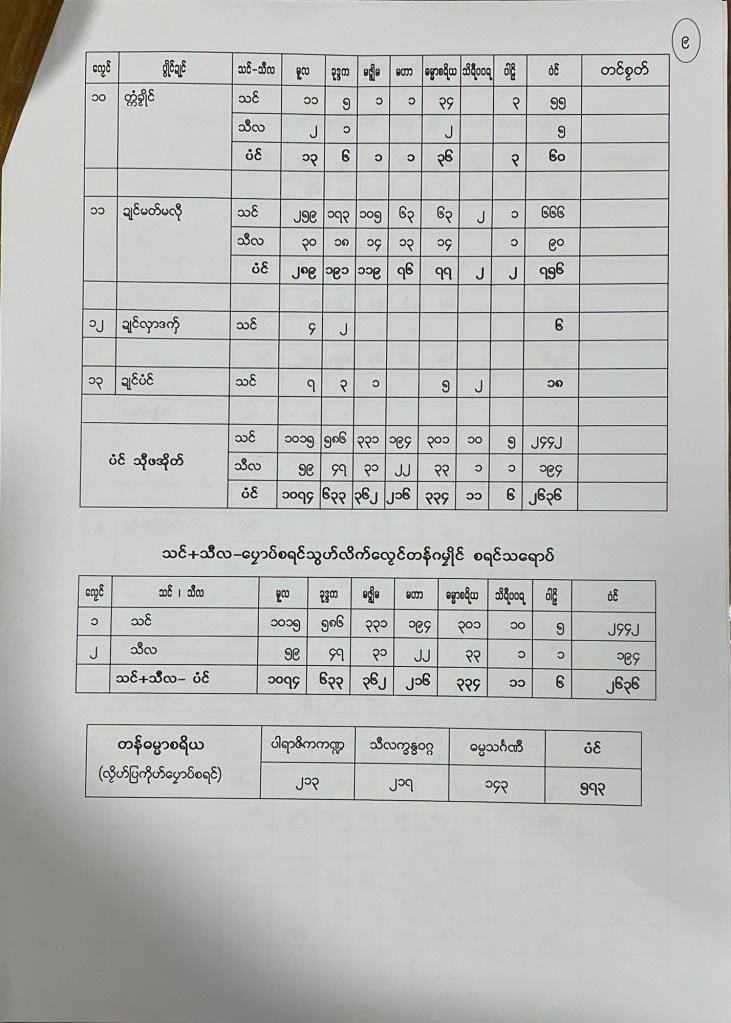 ၉
လွေင် ဗွိုင်ချင် သင်-သီလ မူလ ခုဒ္ဒက မဇ္ဈိမ မဟာ ဓမ္မာစရိယ သိရီပဝရ ပါဠိ ပံင် တင်စွတ်
၁၀ သင် ၁၁ ၅ ၁ ၁ ၃၄ ၃ ၅၅
သီလ ၂ ၁ ၂ ၅
ပံင် ၁၃ ၆ ၁ ၁ ၃၆ ၃ ၆၀
၁၁ ချင်မတ်မလိုှ သင် ၂၅၉ ၁၇၃ ၁၀၅ ၆၃ ၆၃ ၂ ၁ ၆၆၆
သီလ ၃၀ ၁၈ ၁၄ ၁၃ ၁၄ ၁ ၉၀
ပံင် ၂၈၉ ၁၉၁ ၁၁၉ ၇၆ ၇၇ ၂ ၂ ၇၅၆
၁၂ ချင်လှာဒက်ှ သင် ၄ ၂ ၆
၁၃ ချင်ပံင် သင် ၇ ၃ ၁ ၅ ၂ ၁၈
ပံင် သီုဖအိုတ် သင် ၁၀၁၅ ၅၈၆ ၃၃၁ ၁၉၄ ၃၀၁ ၁၀ ၅ ၂၄၄၂
သီလ ၅၉ ၄၇ ၃၁ ၂၂ ၃၃ ၁ ၁ ၁၉၄
ပံင် ၁၀၇၄ ၆၃၃ ၃၆၂ ၂၁၆ ၃၃၄ ၁၁ ၆ ၂၆၃၆
သင်+သီလ-ပှောပ်စရင်သွဟ်လိက်လွေင်တန်ဂမှိုင် စရင်သရောပ်
လွေင် သင် ၊ သီလ မူလ ခုဒ္ဒက မဇ္ဈိမ မဟာ ဓမ္မာစရိယ သိရီပဝရ ပါဠိ ပံင်
၁ သင် ၁၀၁၅ ၅၈၆ ၃၃၁ ၁၉၄ ၃၀၁ ၁၀ ၅ ၂၄၄၂
၂ သီလ ၅၉ ၄၇ ၃၁ ၂၂ ၃၃ ၁ ၁ ၁၉၄
သင်+သီလ- ပံင် ၁၀၇၄ ၆၃၃ ၃၆၂ ၂၁၆ ၃၃၄ ၁၁ ၆ ၂၆၃၆
တန်ဓမ္မာစရိယ ပါရာဇိကကဏ္ဍ သီလက္ခန္ဓဝဂ္ဂ ဓမ္မသင်္ဂဏီ ပံင်
(လှိဟ်ပြကိုဟ်ပှောပ်စရင်) ၂၁၃ ၂၁၇ ၁၄၃ ၅၇၃